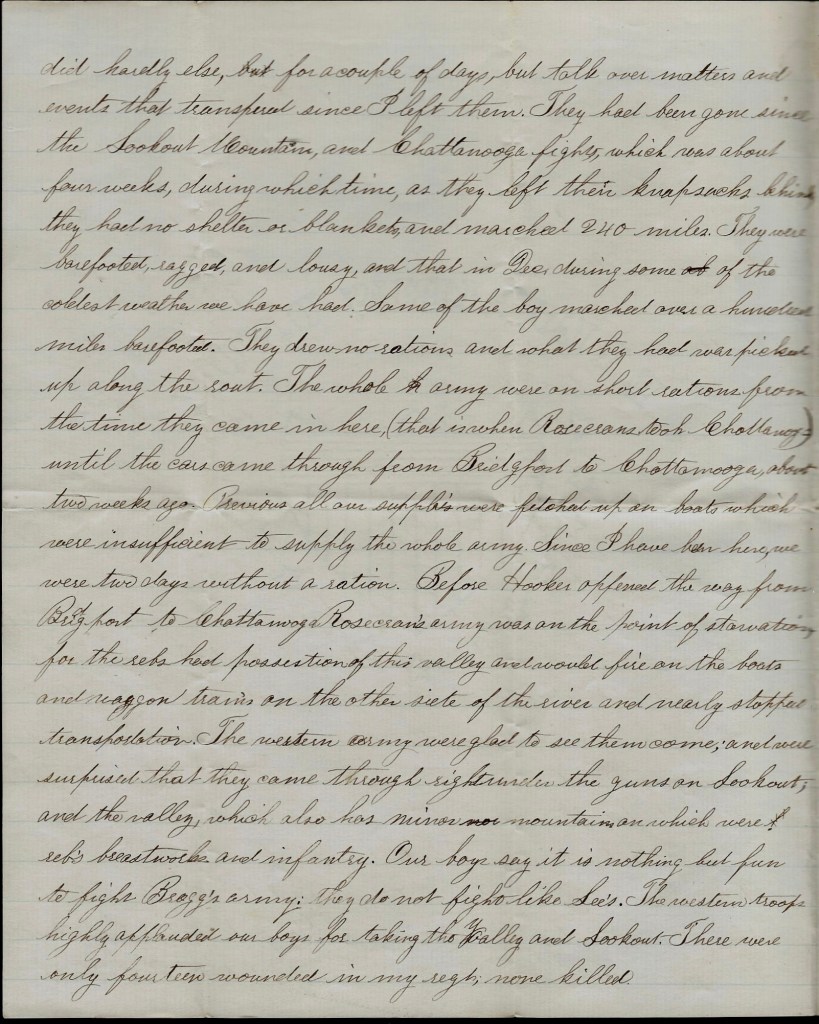 did hardly else, but for a couple of days, but talk over matters and
events that transpered since I left them. They had been gone since
the Lookout Mountain, and Chattanooga fights, which was about
four weeks, during which time, as they left their knapsacks behind,
they had no shelter or blankets, and marched 240 miles. They were
barefooted, ragged, and lousy, and that in Dec, during some of the
coldest weather we have had. Some of the boy marched over a hundred
miles barefooted. They drew no rations and what they had was picked
up along the rout. The whole army were on short rations from
the time they came in here, (that is when Rosecrans took Chattanog-)
until the cars came through from Bridgport to Chattanooga, about
two weeks ago. Previous all our supplis were fetched up on boats which
were insufficient to supply the whole army. Since I have ben here, we
were two days without a ration. Before Hooker oppened the way from
Bridgport to Chattanoga Rosecran's army was on the point of starvation,
for the rebs had possestion of this valley and would fire on the boats
and waggon trains on the other siete of the river and nearly stopped
transportation. The western army were glad to see them come, and were
surprised that they came through right under the guns on Lookout,
and the valley, which also has minor mountains on which were
reb's breastworks and infantry. Our boys say it is nothing but fun
to fight Bragg's army; they do not fight like Lee's. The western troops
highly applauded our boys for taking the Valley and Lookout. There were
only fourteen wounded in my regt; none killed.